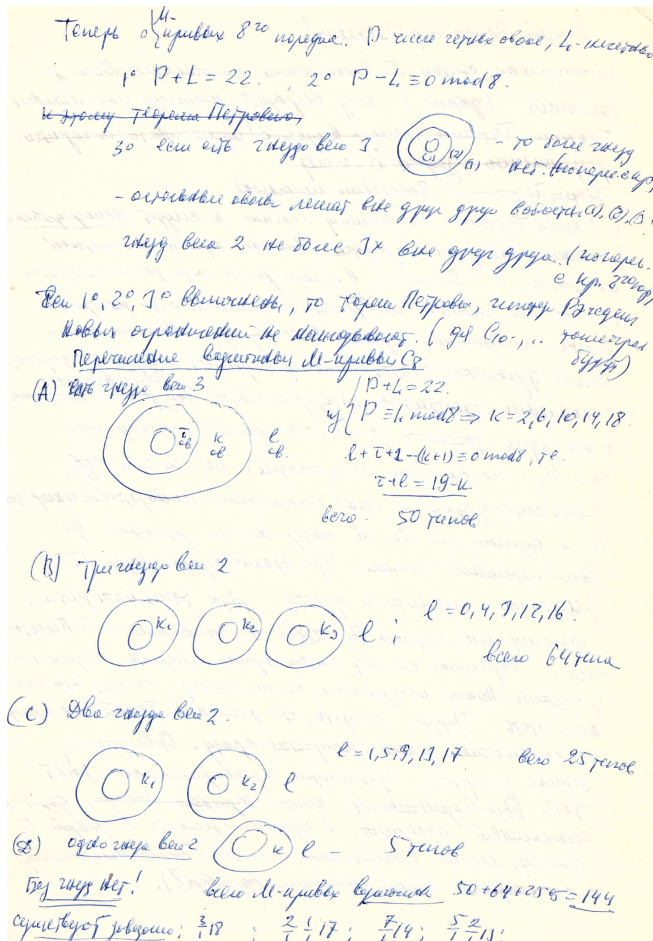 Теперь о М-кривых 8го порядка. P число четных овалов, L - нечетных
1° P+L = 22. ; 2° P-L ≡ 0 mod 8.
к этому теорема Петровского
3° если есть гнездо веса 3. (1) (2) (3) - то более гнезд нет. (
- остальные овалы лежат вне друг друга в областях (1), (2), (3).
гнезд веса 2 не более 3х вне друг друга. (
с кр. 2го пор)
Если 1°, 2°, 3° выполнены, то теорема Петровских
новых ограничений не накладывают. (для C10-, ..
будут)
Перечисление вариантов М-кривых C8
(A) есть гнездо веса 3
τ ов k ов l ов.
из { P+L = 22.
P ≡ L mod 8 ⇒ k = 2, 6, 10, 14, 18.
l+τ+2-(k+1) ≡ 0 mod 8, т.е.
τ+l = 19-k
всего. 50 типов
(B) Три гнезда веса 2
k1 k2 k3 l ; l = 0, 4, 8, 12, 16.
всего 64 типа
(C) Два гнезда веса 2.
k1 k2 l l = 1, 5, 9, 13, 17 всего 25 типов
(D) одно гнездо веса 2 k l - 5 типов
Без гнезд нет! всего М-кривых вариантов 50+64+25+5 = 144
существует заведомо: 3/1 18 ; 2/1 1/1 17 ; 7/1 14 ; 5/1 2/1 13 ;